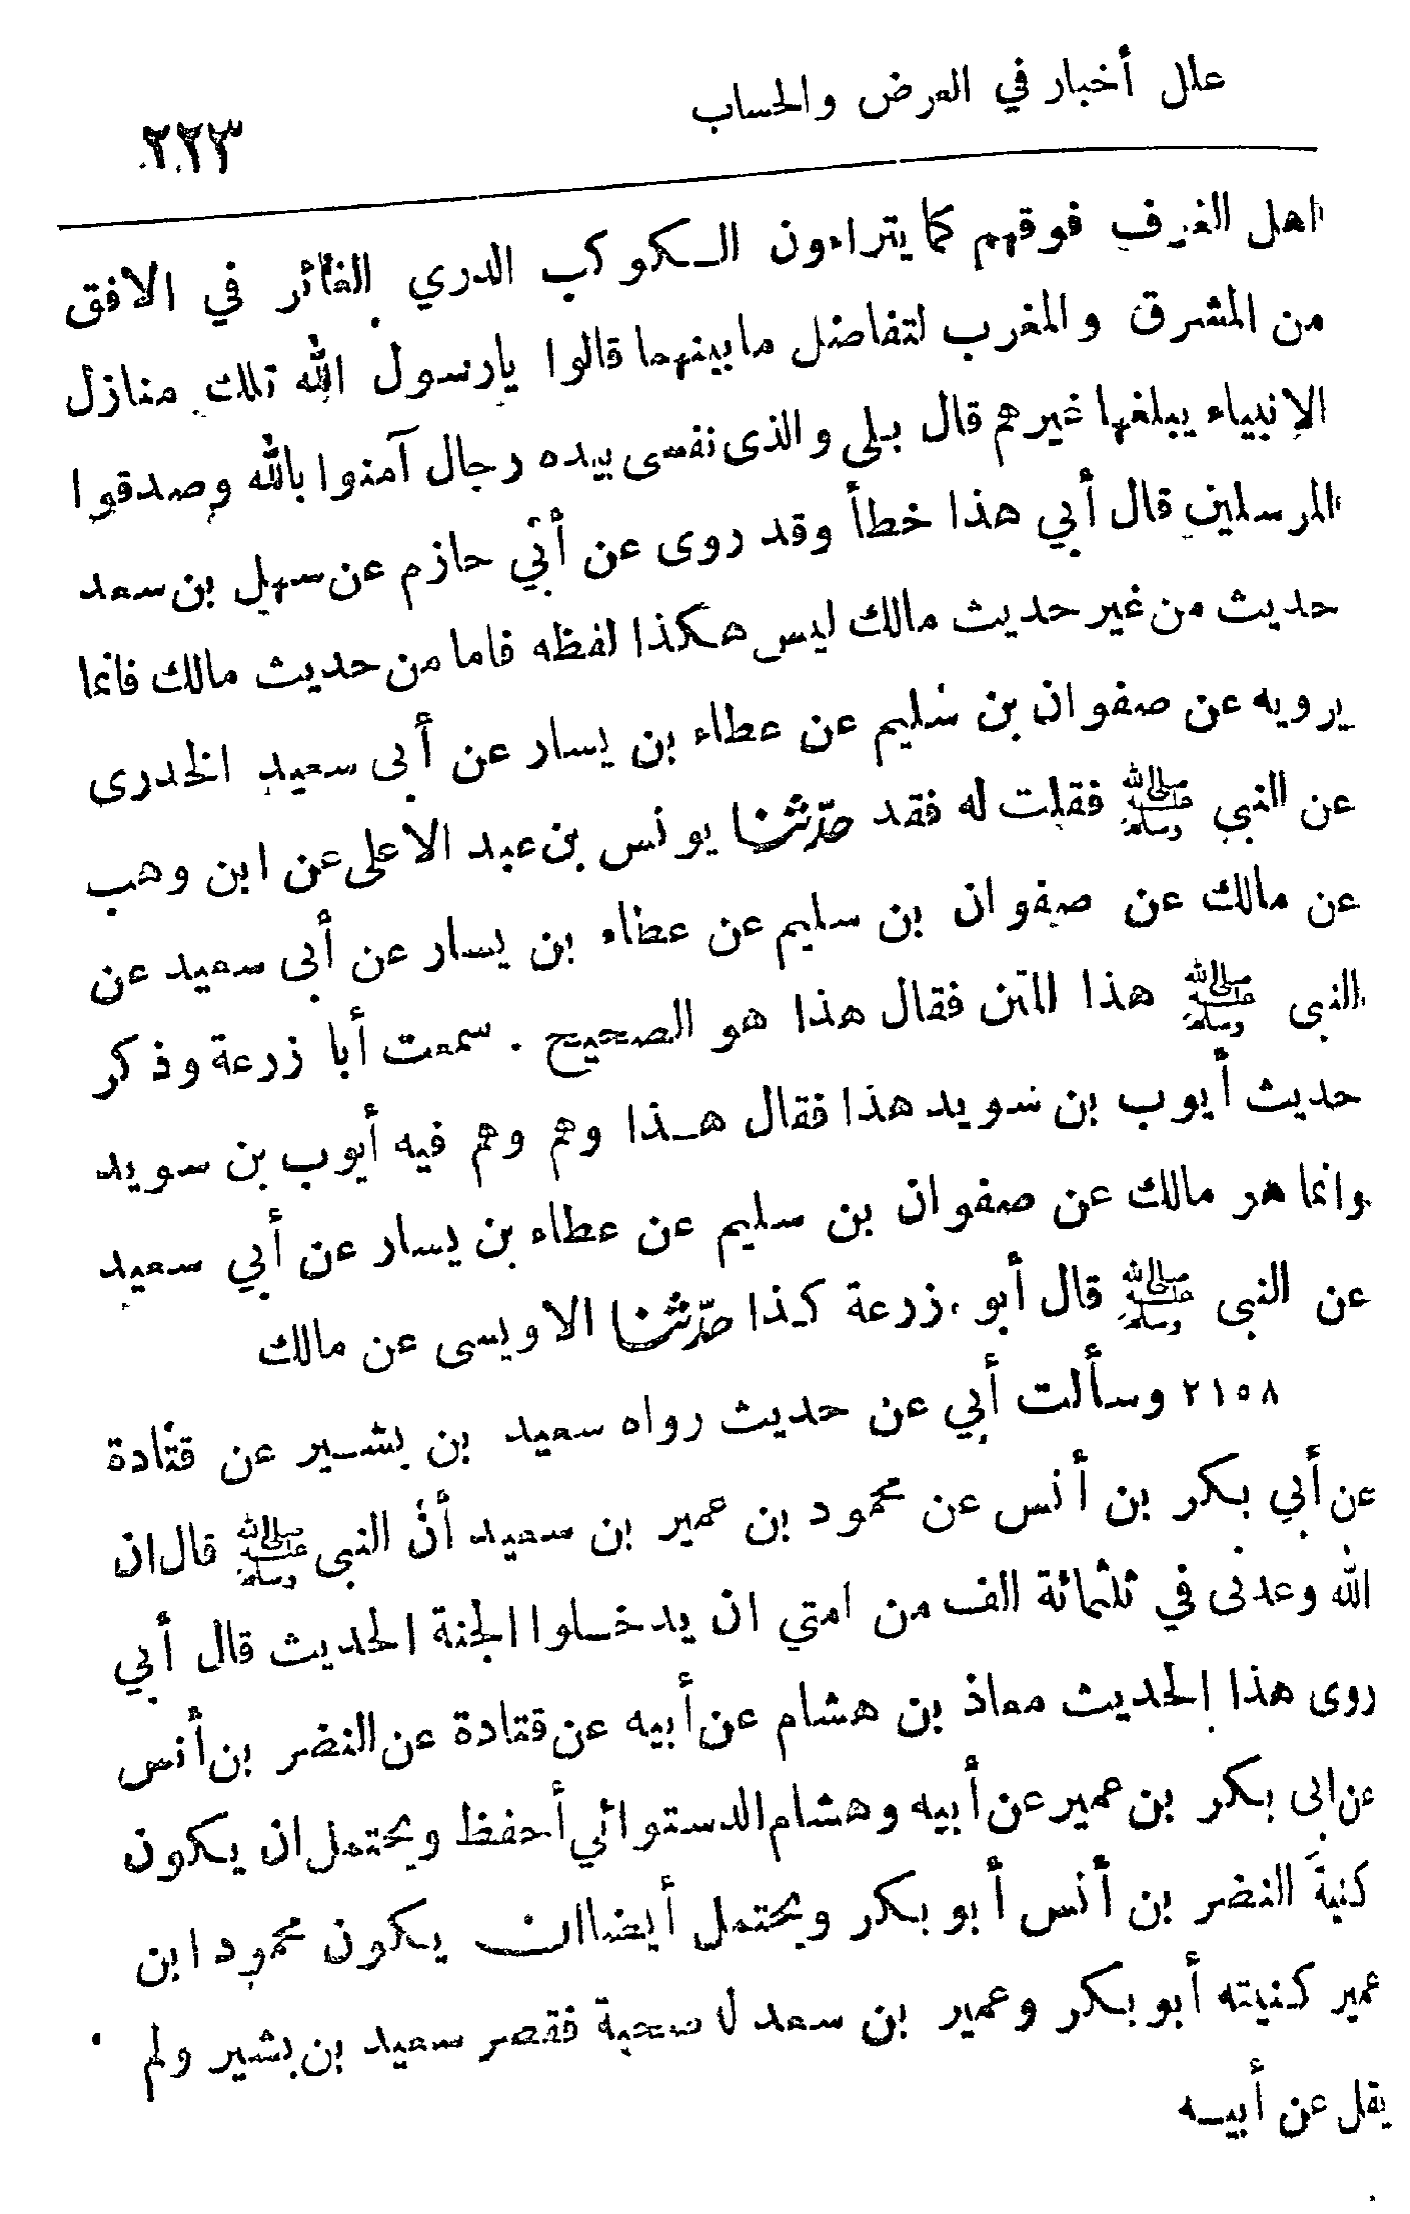 علل أخبار في العرض والحساب
٢٢٣
اهل الغرف فوقهم كما يتراءون الـكوكب الدري الغائر في الافق
من المشرق والمغرب لتفاضل مابينهما قالوا يارسول الله تلك منازل
الانبياء يبلغها غيرهم قال بلى والذى نفسى بيده رجال آمنوا بالله وصدقوا
المرسلين قال أبي هذا خطأ وقد روى عن أبي حازم عن سهل بن سعد
حديث من غير حديث مالك ليس هكذا لفظه فاما من حديث مالك فانما
يرويه عن صفوان بن سليم عن عطاء بن يسار عن أبى سعيد الخدرى
عن النبي ﷺ فقلت له فقد حدّثنا يونس بن عبد الاعلى عن ابن وهب
عن مالك عن صفوان بن سليم عن عطاء بن يسار عن أبى سعيد عن
النبى ﷺ هذا المتن فقال هذا هو الصحيح . سمعت أبا زرعة وذكر
حديث أيوب بن سويد هذا فقال هـذا وهم وهم فيه أيوب بن سويد
وانما هر مالك عن صفوان بن سليم عن عطاء بن يسار عن أبي سعيد
عن النبى ﷺ قال أبو زرعة كذا حدّثنا الاويسى عن مالك
٢١٥٨ وسألت أبي عن حديث رواه سعيد بن بشـير عن قتادة
عن أبي بكر بن أنس عن محمود بن عمير بن سعيد أن النبى ﷺ قال ان
الله وعدنى في ثلثمائة الف من امتي ان يدخـلوا الجنة الحديث قال أبي
روى هذا الحديث معاذ بن هشام عن أبيه عن قتادة عن النضر بن أنس
عن ابى بكر بن عمير عن أبيه وهشام الدستوائي أحفظ ويحتمل ان يكون
كنيةَ النضر بن أنس أبو بكر ويحتمل أيضا ان يكون محمود ابن
عمير كنيته أبو بكر وعمير بن سعد له صحبة فقصر سعيد بن بشير ولم
يقل عن أبيـه